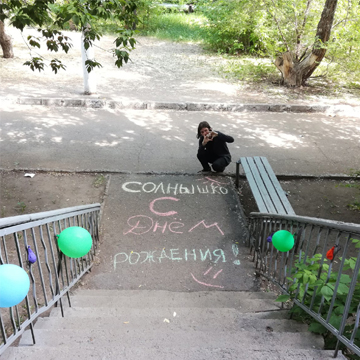 СОЛНЫШКО
С
ДНЁМ
РОЖДЕНИЯ!